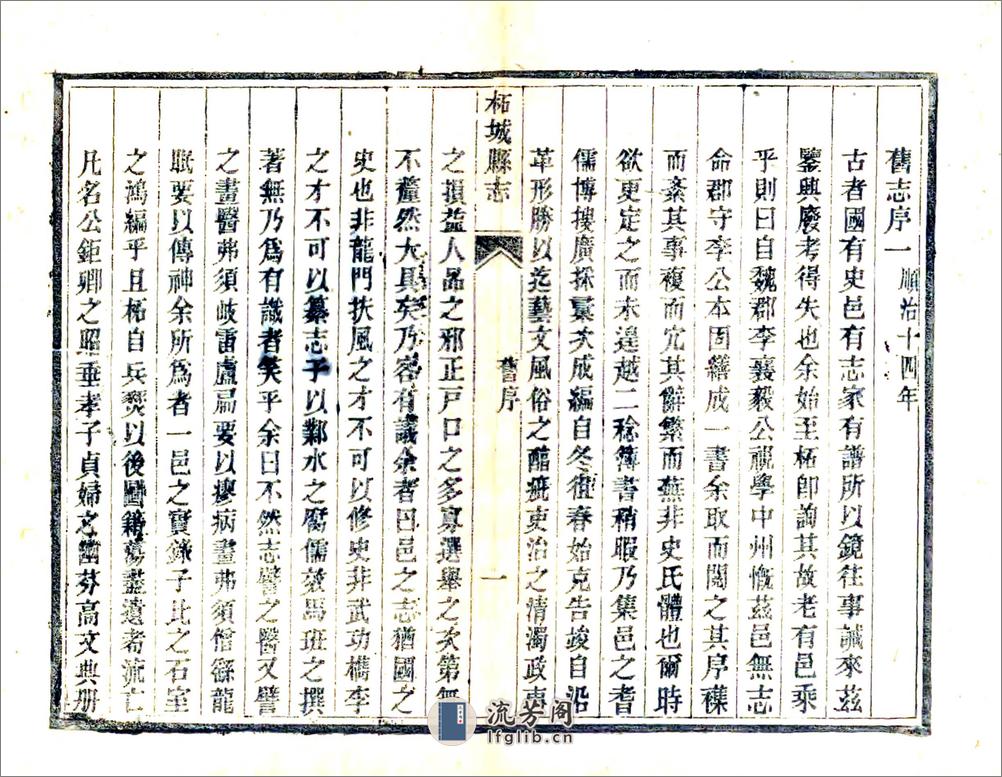 舊志序一 順治十四年
古者國有史邑有志家有譜所以鏡往事誡來茲
鑒興廢考得失也余始至柘卽詢其故老有邑乘
乎則曰自魏郡李襄毅公視學中州慨茲邑無志
命郡守李公本固繕成一書余取而閱之其序襍
而紊其事複而冗其辭繁而蕪非史氏體也爾時
欲更定之而未遑越二稔簿書稍暇乃集邑之耆
儒博搜廣採彙次成編自冬徂春始克告竣自沿
革形勝以迄藝文風俗之醇疵吏治之清濁政事
柘城縣志
舊序
一
之損益人品之邪正戸口之多寡選舉之次第無
不釐然大具矣乃客有議余者曰邑之志猶國之
史也非龍門扶風之才不可以修史非武功檇李
之才不可以纂志子以鄴水之腐儒效馬班之撰
著無乃爲有識者笑乎余曰不然志譬之醫又譬
之畫醫弗須岐雷盧扁要以瘳病畫弗須僧繇龍
眠要以傳神余所爲者一邑之實錄子比之石室
之鴻編乎且柘自兵燹以後圖籍蕩盡遺耇流亡
凡名公鉅卿之照垂孝子貞婦之幽芬高文典册
流芳阁
lfglib.cn